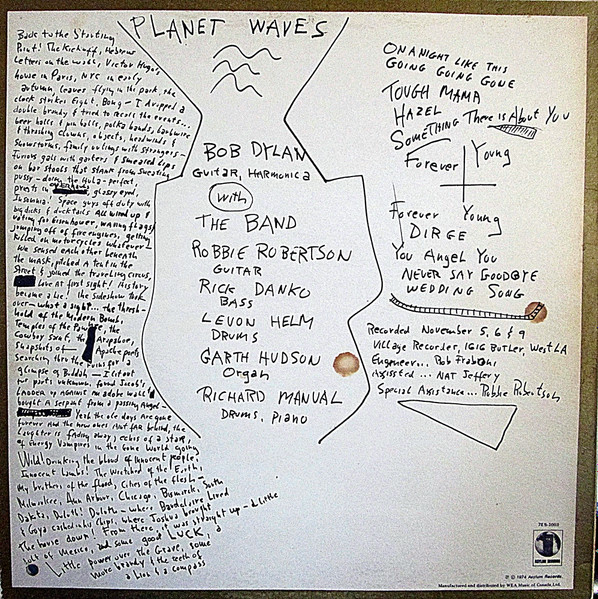 PLANET WAVES
Back to the Starting
Point! The Kickoff, Hebrew
letters on the wall, Victor Hugo's
house in Paris, NYC in early
autumn, leaves flying in the park, the
clock strikes Eight, Bong – I dropped a
double brandy & tried to recall the events...
beer halls & pin balls, polka bands, barbwire
& thrashing clowns, objects, headwinds &
snowstorms, family outings with strangers –
Furious gals with garters & smeared lips
on bar stools that stank from sweating
pussy – doing the Hula – perfect,
priests in glassy eyed,
Insomnia! Space guys off duty with
big dicks & ducktails all wired up &
voting for Eisenhower, waving flags &
jumping off of fire engines, getting
killed on motorcycles whatever –
We sensed each other beneath
the mask, pitched a tent in the
street & joined the traveling circus,
Love at first sight! History
became a lie! the sideshow took
over – what a sight... the thresh-
hold of the Modern Bomb,
Temples of the Pawnee, the
Cowboy saint, the Arapahoe,
snapshots of Apache poets
searching thru the ruins for a
glimpse of Buddah – I lit out
for parts unknown, found Jacob's
Ladder up against an adobe wall &
bought a serpent from a passing Angel –
Yeah the ole days are gone
forever and the new ones aint far behind, the
laughter is fading away, echos of a star,
of Energy Vampires in the Gone World going
Wild! Drinking the blood of innocent people,
Innocent Lambs! The Wretched of the Earth,
My brothers of the flood, cities of the flesh –
Milwaukee, Ann Arbor, Chicago, Bismarck, South
Dakota, Duluth! Duluth – where Baudelaire Lived
& Goya cashed in his chips, where Joshua brought
the house down! From there, it was straight up – a little
jolt of Mexico, and some good LUCK, a
Little power over the Grave, some
more brandy & the teeth of
a Lion & a compass
BOB DYLAN
Guitar, Harmonica
with
THE BAND
ROBBIE ROBERTSON
GUITAR
RICK DANKO
BASS
LEVON HELM
DRUMS
GARTH HUDSON
Organ
RICHARD MANUAL
DRUMS, PIANO
ON A NIGHT LIKE THIS
GOING GOING GONE
TOUGH MAMA
HAZEL
SOMETHING There is About You
Forever Young
Forever Young
DIRGE
You Angel You
NEVER SAY GOODBYE
WEDDING SONG
Recorded November 5, 6 & 9
Village Recorder, 1616 Butler, West LA
Engineer... Rob Fraboni
Assisted... NAT Jeffery
Special Assistance... Robbie Robertson
7ES-1003
ASYLUM RECORDS
℗ © 1974 Asylum Records.
Manufactured and distributed by WEA Music of Canada, Ltd.